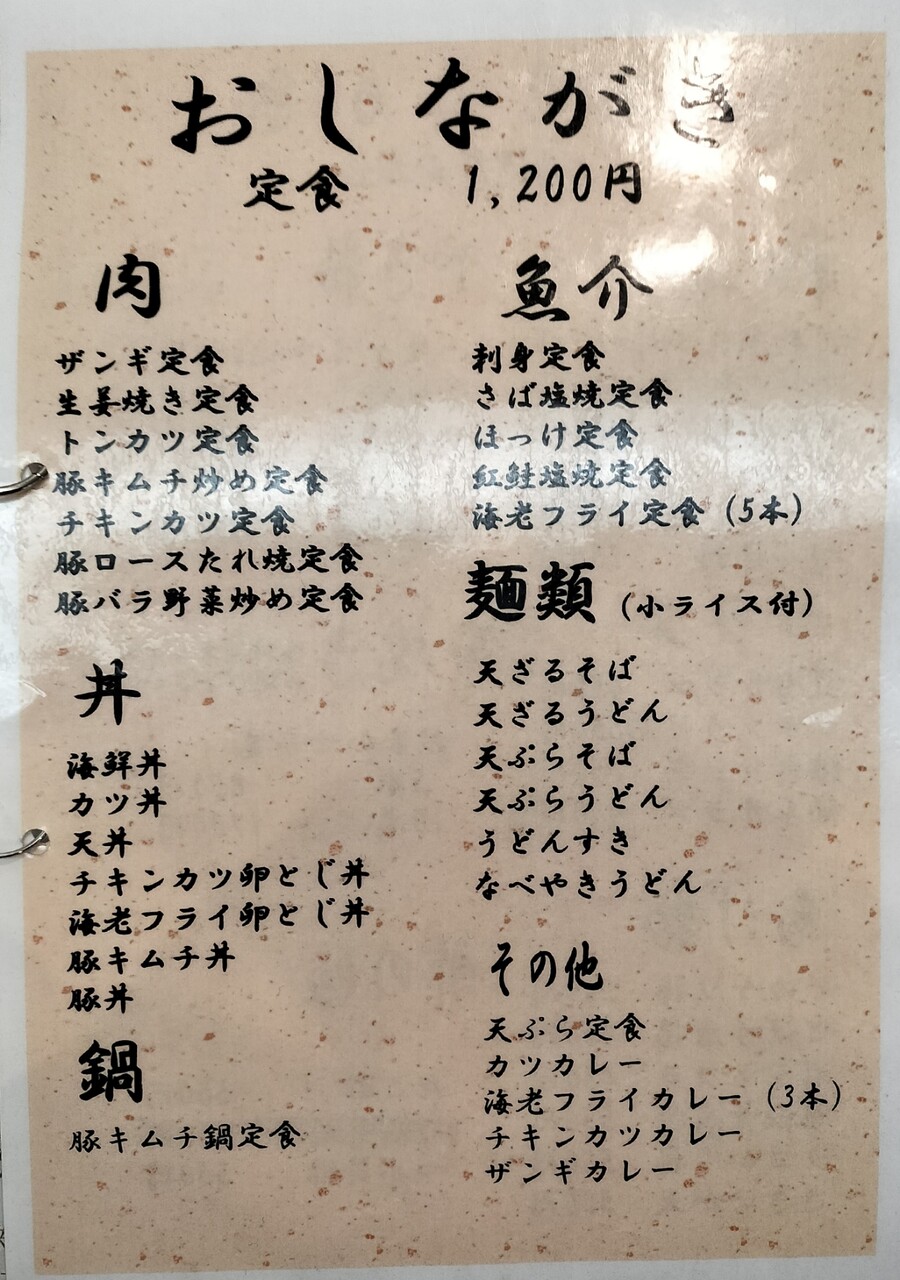 おしながき
定食 1,200円
肉
ザンギ定食
生姜焼き定食
トンカツ定食
豚キムチ炒め定食
チキンカツ定食
豚ロースたれ焼定食
豚バラ野菜炒め定食
丼
海鮮丼
カツ丼
天丼
チキンカツ卵とじ丼
海老フライ卵とじ丼
豚キムチ丼
豚丼
鍋
豚キムチ鍋定食
魚介
刺身定食
さば塩焼定食
ほっけ定食
紅鮭塩焼定食
海老フライ定食（5本）
麺類（小ライス付）
天ざるそば
天ざるうどん
天ぷらそば
天ぷらうどん
うどんすき
なべやきうどん
その他
天ぷら定食
カツカレー
海老フライカレー（3本）
チキンカツカレー
ザンギカレー